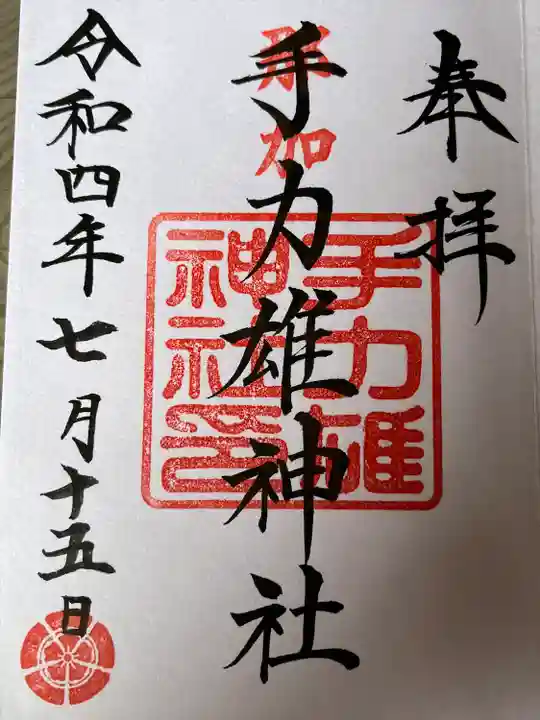 奉拝
那加
手力雄神社
手力雄
神社印
令和四年七月十五日